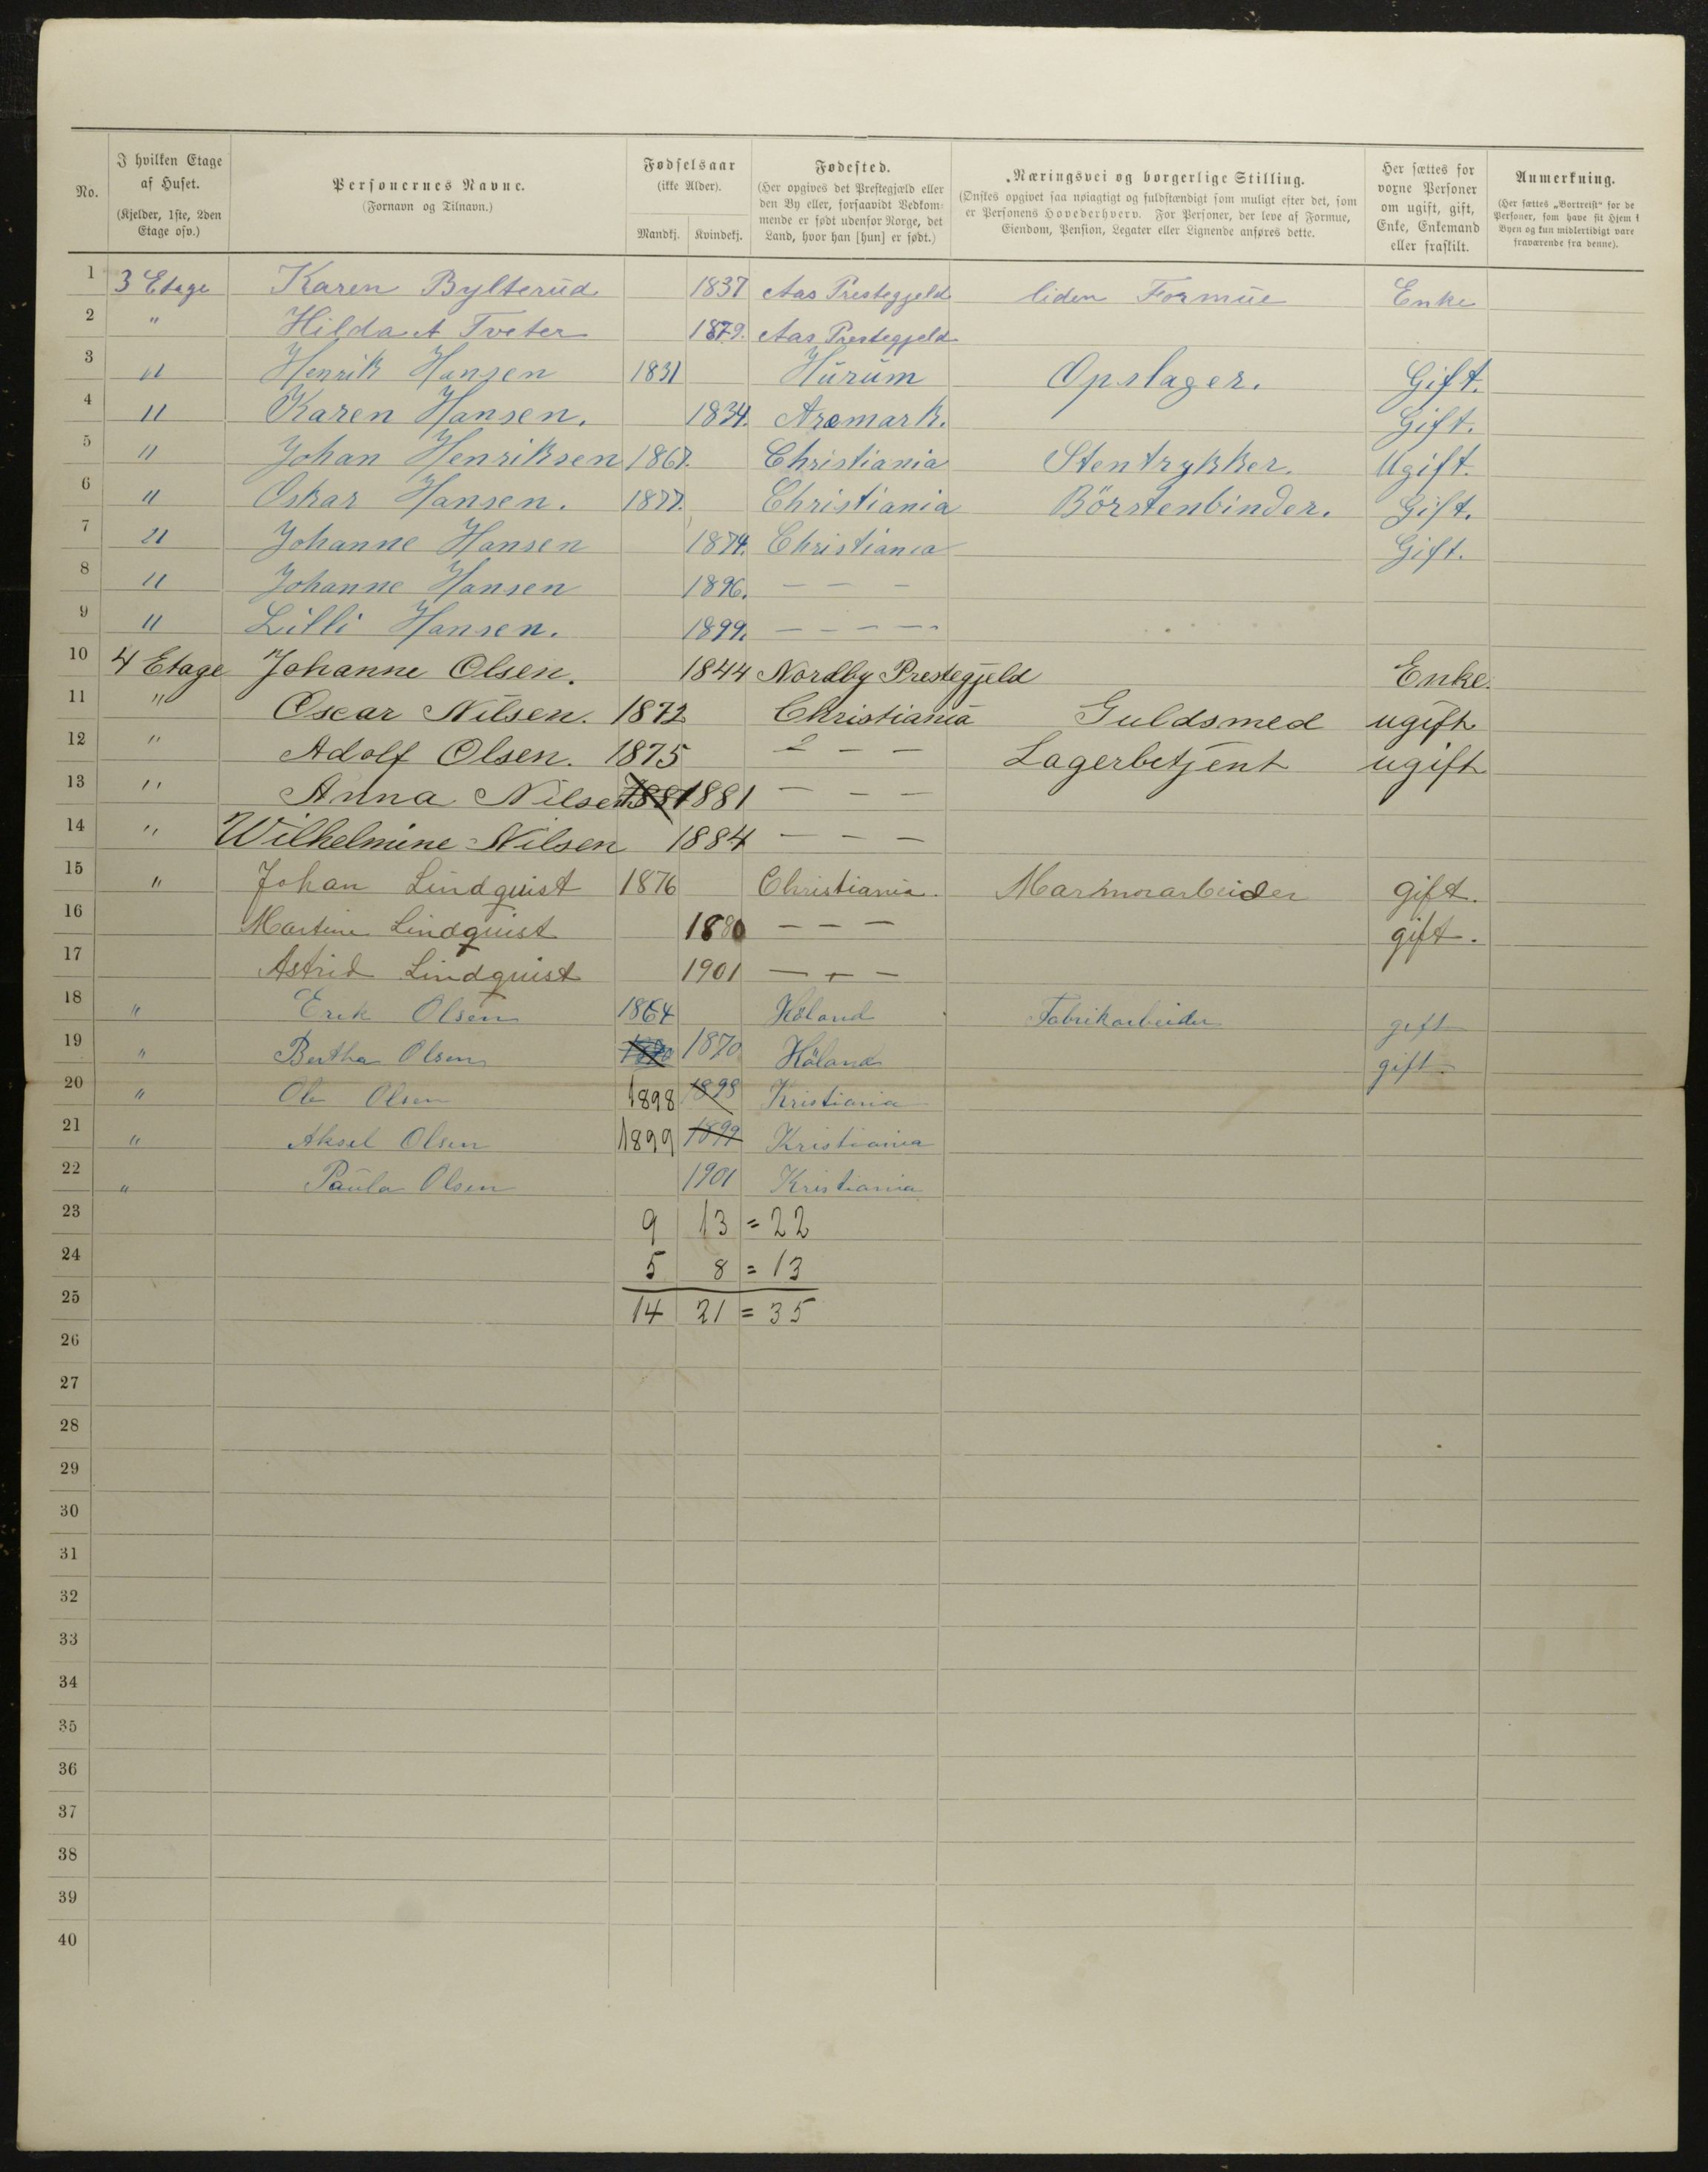 No.
I hvilken Etage af Huset. (Kjelder, 1ste, 2den Etage osv.)
Personernes Navne. (Fornavn og Tilnavn.)
Fødselsaar (ikke Alder). Mandkj. Kvindekj.
Fødested. (Her opgives det Prestegjæld eller den By eller, forsaavidt Vedkommende er født udenfor Norge, det Land, hvor han [hun] er født.)
Næringsvei og borgerlige Stilling. (Ønskes opgivet saa nøiagtigt og fuldstændigt som muligt efter det, som er Personens Hovederhverv. For Personer, der leve af Formue, Eiendom, Pension, Legater eller Lignende anføres dette.)
Her sættes for voxne Personer om ugift, gift, Enke, Enkemand eller fraskilt.
Anmerkning. (Her sættes „Bortreist“ for de Personer, som have sit Hjem i Byen og kun midlertidigt vare fraværende fra denne).
1 3 Etage Karen Bylterud 1837 Aas Prestegjeld liden Formue Enke
2 " Hilda A Tveter 1879. Aas Prestegjeld
3 " Henrik Hansen 1831 Hurum Opslager. Gift.
4 " Karen Hansen. 1834. Aremark. Gift.
5 " Johan Henriksen 1867. Christiania Stentrykker. Ugift.
6 " Oskar Hansen. 1877. Christiania Börstenbinder. Gift.
7 " Johanne Hansen 1874. Christiania Gift.
8 " Johanne Hansen 1896. — — —
9 " Lilli Hansen. 1899. — — — —
10 4 Etage Johanne Olsen. 1844 Nordby Prestegjeld Enke.
11 " Oscar Nilsen. 1872 Christiania Guldsmed ugift
12 " Adolf Olsen. 1875 — — — Lagerbetjent ugift
13 " Anna Nilsen 1881 1881 — — —
14 " Wilhelmine Nilsen 1884 — — —
15 " Johan Lindquist 1876 Christiania. Marmorarbeider gift.
16 Martine Lindquist 1880 — — — gift.
17 Astrid Lindquist 1901 — — —
18 " Erik Olsen 1864 Höland Fabrikarbeider gift
19 " Bertha Olsen 1870 1870 Höland gift.
20 " Ole Olsen 1898 1898 Kristiania
21 " Aksel Olsen 1899 1899 Kristiania
22 " Paula Olsen 1901 Kristiania
23 9 13 = 22
24 5 8 = 13
25 14 21 = 35
26
27
28
29
30
31
32
33
34
35
36
37
38
39
40